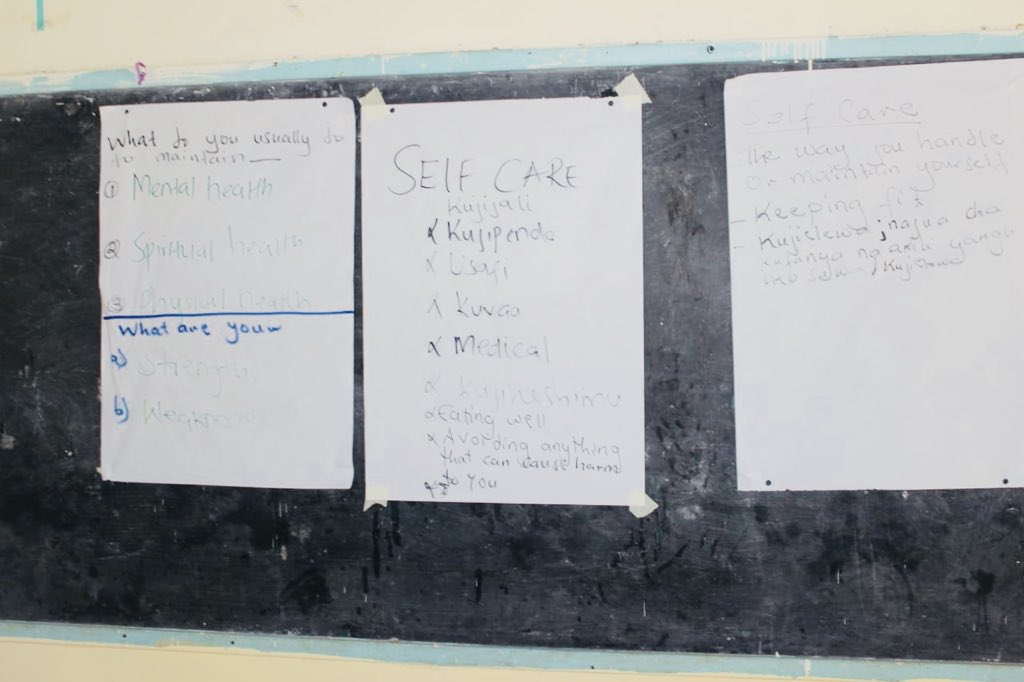 What do you usually do
to maintain __
① Mental health
② Spiritual health
③ Physical health
What are your
a) Strength
b) Weakness
SELF CARE
Kujijali
x Kujipenda
x Usafi
x Kuvaa
x Medical
x Kujiheshimu
x Eating well
x Avoiding anything
that can cause harm
to you
Self Care
The way you handle
or maintain yourself
- Keeping fit
- Kujielewa; najua cha
kufanya na akili yangu
iko sawa, Kujielewa